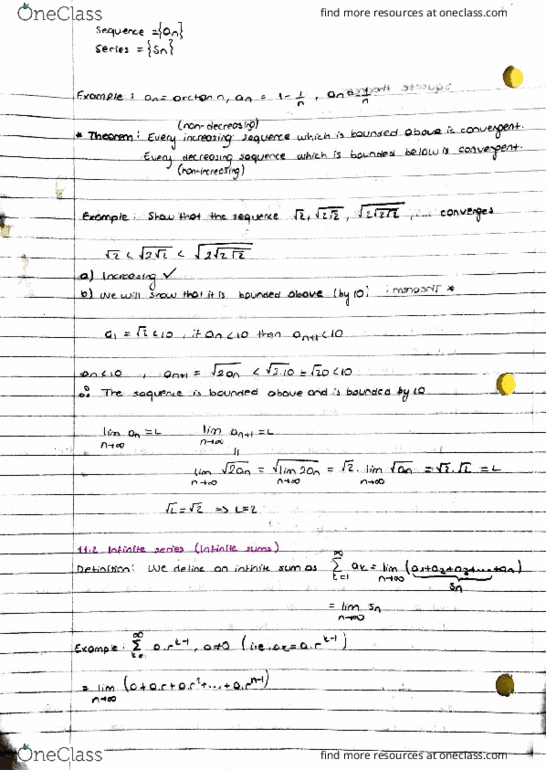 OneClass
find more resources at oneclass.com
Sequence = {an}
Series = {Sn}
Example : an = arctan n, an = 1 - 1/n , an = -1/n
(non-decreasing)
* Theorem : Every increasing sequence which is bounded above is convergent.
Every decreasing sequence which is bounded below is convergent.
(non-increasing)
Example : Show that the sequence √2, √(2√2), √(2√(2√2)), ... converges
√2 < √(2√2) < √(2√(2√2))
a) Increasing ✓
b) We will show that it is bounded above (by 10)
a1 = √2 < 10 , if an < 10 then an+1 < 10
an < 10 , an+1 = √(2an) < √(2.10) = √20 < 10
∴ The sequence is bounded above and is bounded by 10
lim n→∞ an = L lim n→∞ an+1 = L
||
lim n→∞ √(2an) = √(lim n→∞ 2an) = √2 . lim n→∞ √an = √2 . √L = L
√L = √2 => L = 2
11.2 Infinite series (Infinite sums)
Definition : We define an infinite sum as ∞ Σ k=1 ak = lim n→∞ (a1+a2+a3+...+an)
Sn
= lim n→∞ Sn
Example : ∞ Σ a.r^k-1 , a≠0 (i.e. ak = a.r^k-1)
= lim n→∞ (a+a.r+a.r²+...+a.r^n-1)
OneClass
find more resources at oneclass.com